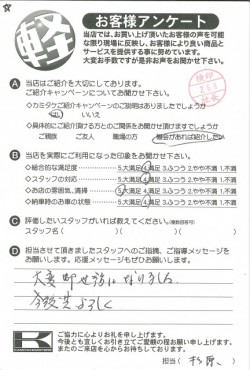 軽 お客様アンケート
当店では、お買い上げ頂いたお客様の声を可能
な限り現場に反映し、お客様により良い商品と
サービスを提供する事に努めています。
大変お手数ですが是非お声をお聞かせ下さい。
A 当店はご紹介を大切にしております。
ご紹介キャンペーンについてお聞かせ下さい。
◇カミタクご紹介キャンペーンのご説明はありましたでしょうか
はい いいえ
◇具体的にご紹介頂ける方とのご関係をお聞かせ頂けますでしょうか
ご親族 ご友人 職場の方 機会があれば紹介したい
B 当店を実際にご利用になった印象をお聞かせ下さい。
◇総合的な満足度 5.大満足 4.満足 3.ふつう 2.やや不満 1.不満
◇スタッフの対応 5.大満足 4.満足 3.ふつう 2.やや不満 1.不満
◇お店の雰囲気、清掃 5.大満足 4.満足 3.ふつう 2.やや不満 1.不満
◇納車時のお車の状態 5.大満足 4.満足 3.ふつう 2.やや不満 1.不満
C 評価したいスタッフがいれば教えてください。(複数回答可)
スタッフ名( ) ( )
D 担当させて頂きましたスタッフへのご指摘、ご指導メッセージを
お願いします。応援メッセージもぜひお願いします。
大変御世話になりました
今後共よろしく
K
ご協力に心よりお礼を申し上げます。
今後とも宜しくお引き立てご愛顧の程お願い申し上げます。
またのご来店を心からお待ちしております。
担当( 杉原 )